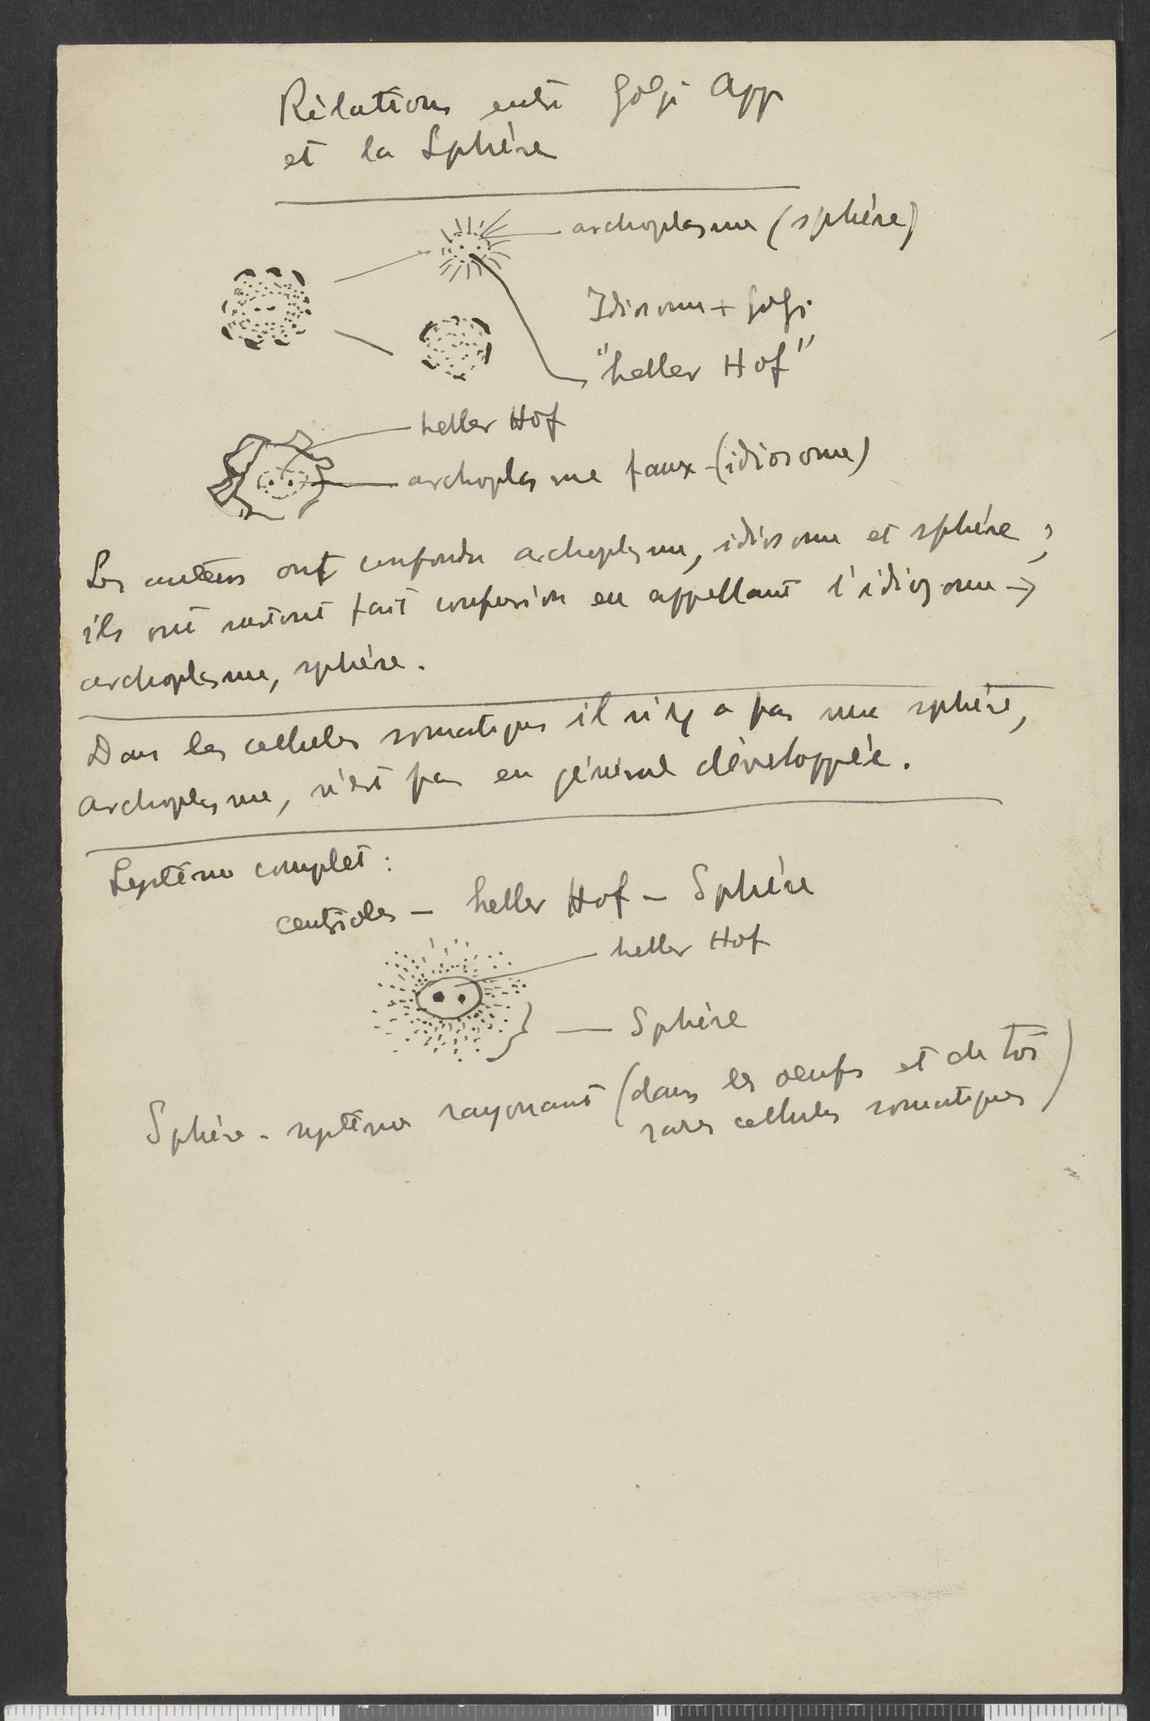 Rélations entre Golgi App
et la Sphère
archoplasme (sphère)
Idiosome + Golgi
"heller Hof"
heller Hof
archoplasme faux (idiosome)
Les auteurs ont confondu archoplasme, idiosome et sphère;
ils ont surtout fait confusion en appellant l'idiozome →
archoplasme, sphère.
Dans les cellules somatiques il n'y a pas une sphère,
archoplasme, n'est pas en général développée.
Système complet:
centrioles – heller Hof – Sphère
heller Hof
} — Sphère
Sphère - système rayonant (dans les oeufs et de très
rares cellules somatiques)